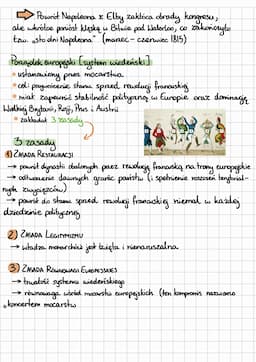 Powrót Napoleona z Elby zakłóca obrady kongresu,
ale wkrótce poniósł klęskę w Bitwie pod Waterloo, co zakończyło
tzw. „sto dni Napoleona" (marzec - czerwiec 1815)
Porządek europejski [system wiedeński]
• ustanowiony przez mocarstwa
• cel: przywrócenie stanu sprzed rewolucji francuskiej
• miał zapewnić stabilność polityczną w Europie oraz dominację
Wielkiej Brytanii, Rosji, Prus i Austrii
• zakładał 3 zasady
3 zasady
1) ZASADA RESTAURACJI
→ powrót dynastii obalonych przez rewolucję francuską na trony europejskie
→ odtworzenie dawnych granic państw (i spełnienie roszczeń terytorial-
nych zwycięzców)
→ powrót do stanu sprzed rewolucji francuskiej niemal w każdej
dziedzinie politycznej
2) ZASADA LEGITYMIZMU
→ władza monarchów jest święta i nienaruszalna
3) ZASADA RÓWNOWAGI EUROPEJSKIEJ
→ trwałość systemu wiedeńskiego
→ równowaga wśród mocarstw europejskich (ten kompromis nazwano
„koncertem mocarstw